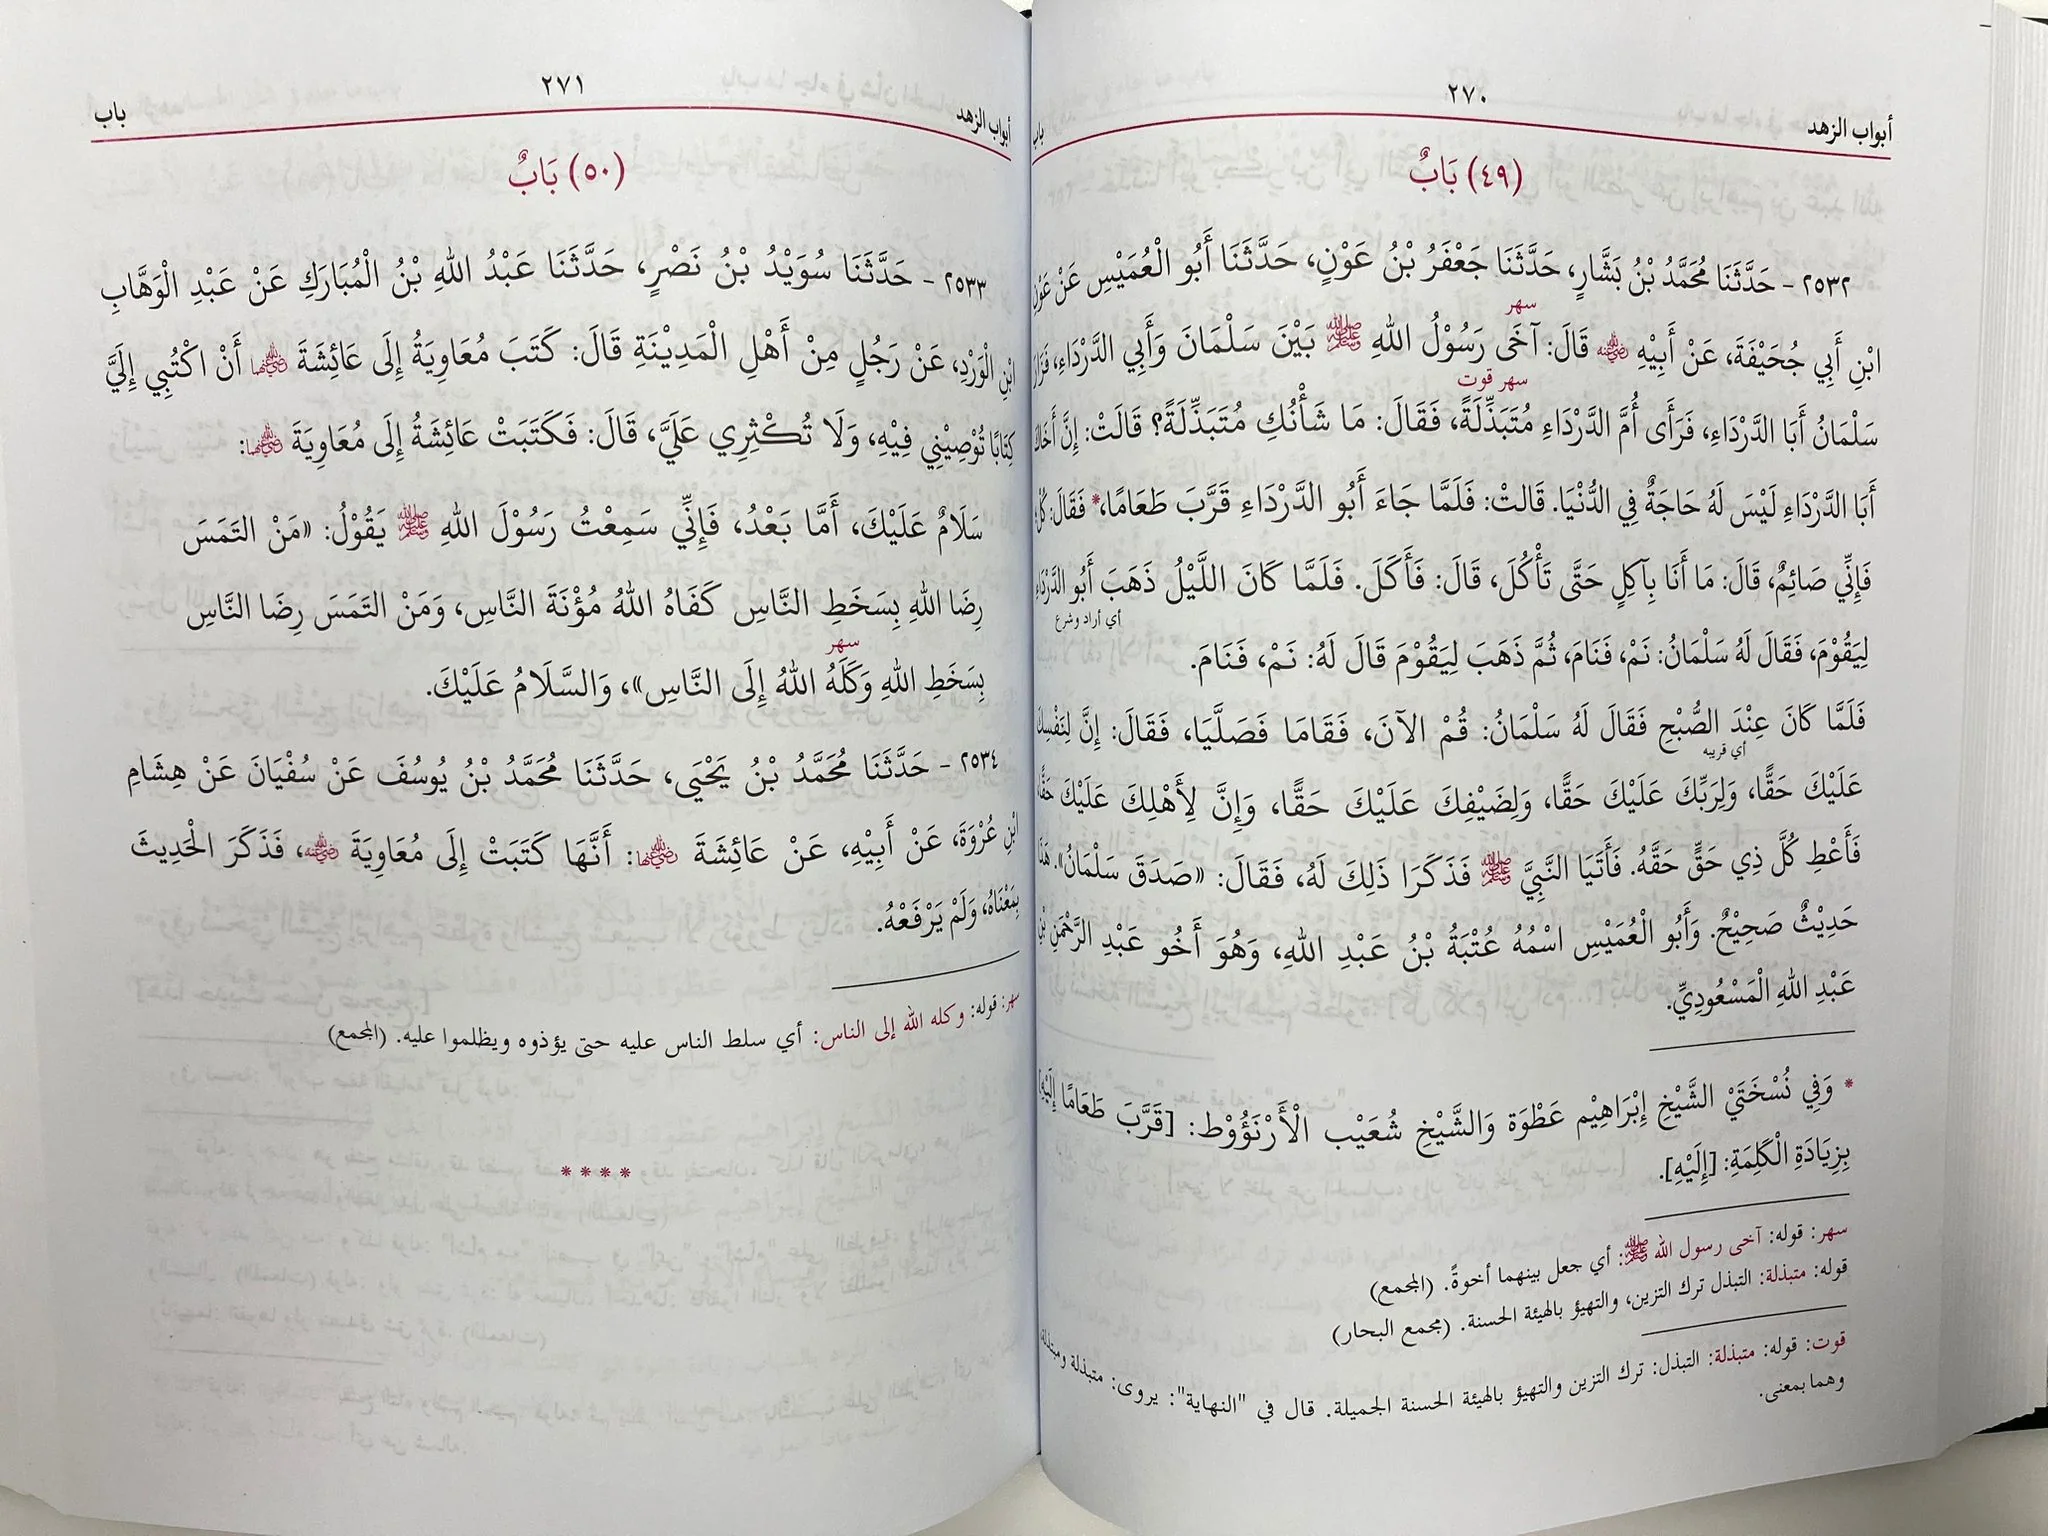 أبواب الزهد
٢٧٠
باب
(٤٩) بَابٌ
٢٥٣٢ - حَدَّثَنَا مُحَمَّدُ بْنُ بَشَّارٍ، حَدَّثَنَا جَعْفَرُ بْنُ عَوْنٍ، حَدَّثَنَا أَبُو الْعُمَيْسِ عَنْ عَوْنِ
سهر
ابْنِ أَبِي جُحَيْفَةَ، عَنْ أَبِيْهِ ﵁ قَالَ: آخَى رَسُوْلُ اللهِ ﷺ بَيْنَ سَلْمَانَ وَأَبِي الدَّرْدَاءِ، فَزَارَ
سهر قوت
سَلْمَانُ أَبَا الدَّرْدَاءِ، فَرَأَى أُمَّ الدَّرْدَاءِ مُتَبَذِّلَةً، فَقَالَ: مَا شَأْنُكِ مُتَبَذِّلَةً؟ قَالَتْ: إِنَّ أَخَاكَ
أَبَا الدَّرْدَاءِ لَيْسَ لَهُ حَاجَةٌ فِي الدُّنْيَا. قَالتْ: فَلَمَّا جَاءَ أَبُو الدَّرْدَاءِ قَرَّبَ طَعَامًا،* فَقَالَ: كُلْ
فَإِنِّي صَائِمٌ، قَالَ: مَا أَنَا بِآكِلٍ حَتَّى تَأْكُلَ، قَالَ: فَأَكَلَ. فَلَمَّا كَانَ اللَّيْلُ ذَهَبَ أَبُو الدَّرْدَاءِ
أي أراد وشرع
لِيَقُوْمَ، فَقَالَ لَهُ سَلْمَانُ: نَمْ، فَنَامَ، ثُمَّ ذَهَبَ لِيَقُوْمَ قَالَ لَهُ: نَمْ، فَنَامَ.
فَلَمَّا كَانَ عِنْدَ الصُّبْحِ فَقَالَ لَهُ سَلْمَانُ: قُمْ الآنَ، فَقَامَا فَصَلَّيَا، فَقَالَ: إِنَّ لِنَفْسِكَ
أي قريبه
عَلَيْكَ حَقًّا، وَلِرَبِّكَ عَلَيْكَ حَقًّا، وَلِضَيْفِكَ عَلَيْكَ حَقًّا، وَإِنَّ لِأَهْلِكَ عَلَيْكَ حَقًّا
فَأَعْطِ كُلَّ ذِي حَقٍّ حَقَّهُ. فَأَتَيَا النَّبِيَّ ﷺ فَذَكَرَا ذَلِكَ لَهُ، فَقَالَ: «صَدَقَ سَلْمَانُ». هَذَا
حَدِيْثٌ صَحِيْحٌ. وَأَبُو الْعُمَيْسِ اسْمُهُ عُتْبَةُ بْنُ عَبْدِ اللهِ، وَهُوَ أَخُو عَبْدِ الرَّحْمَنِ بْنِ
عَبْدِ اللهِ الْمَسْعُودِيِّ.
* وَفِي نُسْخَتَيْ الشَّيْخِ إِبْرَاهِيْم عَطْوَة وَالشَّيْخِ شُعَيْب الْأَرْنَؤُوْط: [قَرَّبَ طَعَامًا إِلَيْهِ]
بِزِيَادَةِ الْكَلِمَةِ: [إِلَيْهِ].
سهر: قوله: آخى رسول الله ﷺ: أي جعل بينهما أخوةً. (المجمع)
قوله: متبذلة: التبذل ترك التزين، والتهيؤ بالهيئة الحسنة. (مجمع البحار)
قوت: قوله: متبذلة: التبذل: ترك التزين والتهيؤ بالهيئة الحسنة الجميلة. قال في "النهاية": يروى: متبذلة ومبتذلة،
وهما بمعنى.
أبواب الزهد
٢٧١
باب
(٥٠) بَابٌ
٢٥٣٣ - حَدَّثَنَا سُوَيْدُ بْنُ نَصْرٍ، حَدَّثَنَا عَبْدُ اللهِ بْنُ الْمُبَارَكِ عَنْ عَبْدِ الْوَهَّابِ
ابْنِ الْوَرْدِ، عَنْ رَجُلٍ مِنْ أَهْلِ الْمَدِيْنَةِ قَالَ: كَتَبَ مُعَاوِيَةُ إِلَى عَائِشَةَ ﵂ أَنْ اكْتُبِي إِلَيَّ
كِتَابًا تُوْصِيْنِي فِيْهِ، وَلَا تُكْثِرِي عَلَيَّ، قَالَ: فَكَتَبَتْ عَائِشَةُ إِلَى مُعَاوِيَةَ ﵄:
سَلَامٌ عَلَيْكَ، أَمَّا بَعْدُ، فَإِنِّي سَمِعْتُ رَسُوْلَ اللهِ ﷺ يَقُوْلُ: «مَنْ التَمَسَ
رِضَا اللهِ بِسَخَطِ النَّاسِ كَفَاهُ اللهُ مُؤْنَةَ النَّاسِ، وَمَنْ التَمَسَ رِضَا النَّاسِ
سهر
بِسَخَطِ اللهِ وَكَلَهُ اللهُ إِلَى النَّاسِ»، وَالسَّلَامُ عَلَيْكَ.
٢٥٣٤ - حَدَّثَنَا مُحَمَّدُ بْنُ يَحْيَى، حَدَّثَنَا مُحَمَّدُ بْنُ يُوسُفَ عَنْ سُفْيَانَ عَنْ هِشَامِ
ابْنِ عُرْوَةَ، عَنْ أَبِيْهِ، عَنْ عَائِشَةَ ﵂: أَنَّهَا كَتَبَتْ إِلَى مُعَاوِيَةَ ﵁، فَذَكَرَ الْحَدِيثَ
بِمَعْنَاهُ، وَلَمْ يَرْفَعْهُ.
سهر: قوله: وكله الله إلى الناس: أي سلط الناس عليه حتى يؤذوه ويظلموا عليه. (المجمع)
* * * *